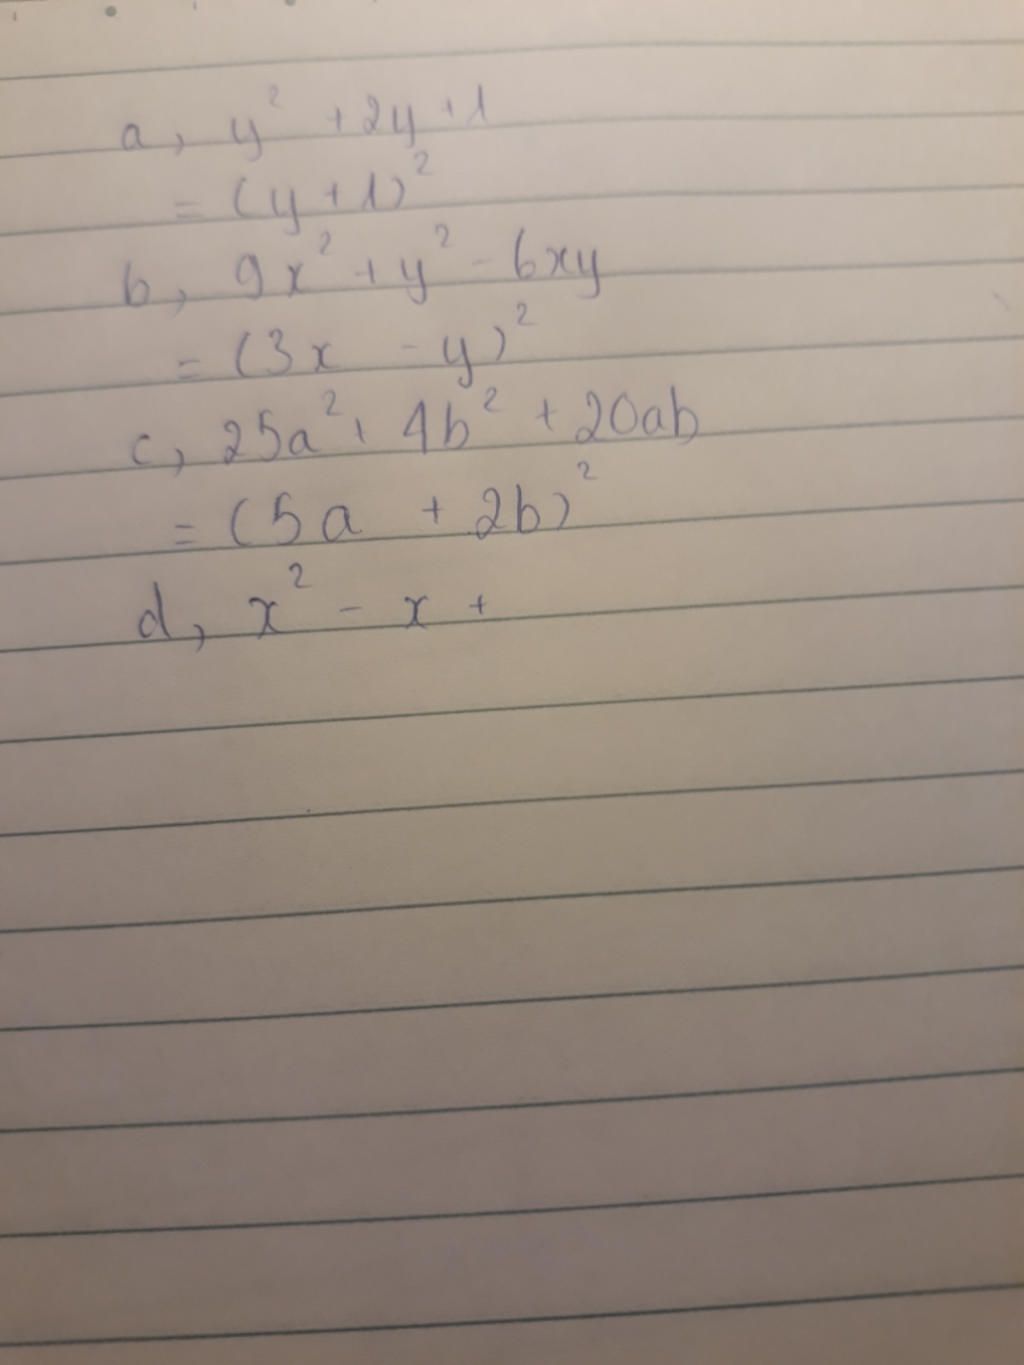 a, y² + 2y + 1
= (y + 1)²
b, 9x² + y² - 6xy
= (3x - y)²
c, 25a² + 4b² + 20ab
= (5a + 2b)²
d, x² - x +